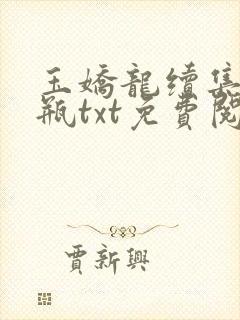 玉嬌龍續集
瓶txt免費閱
賈新興